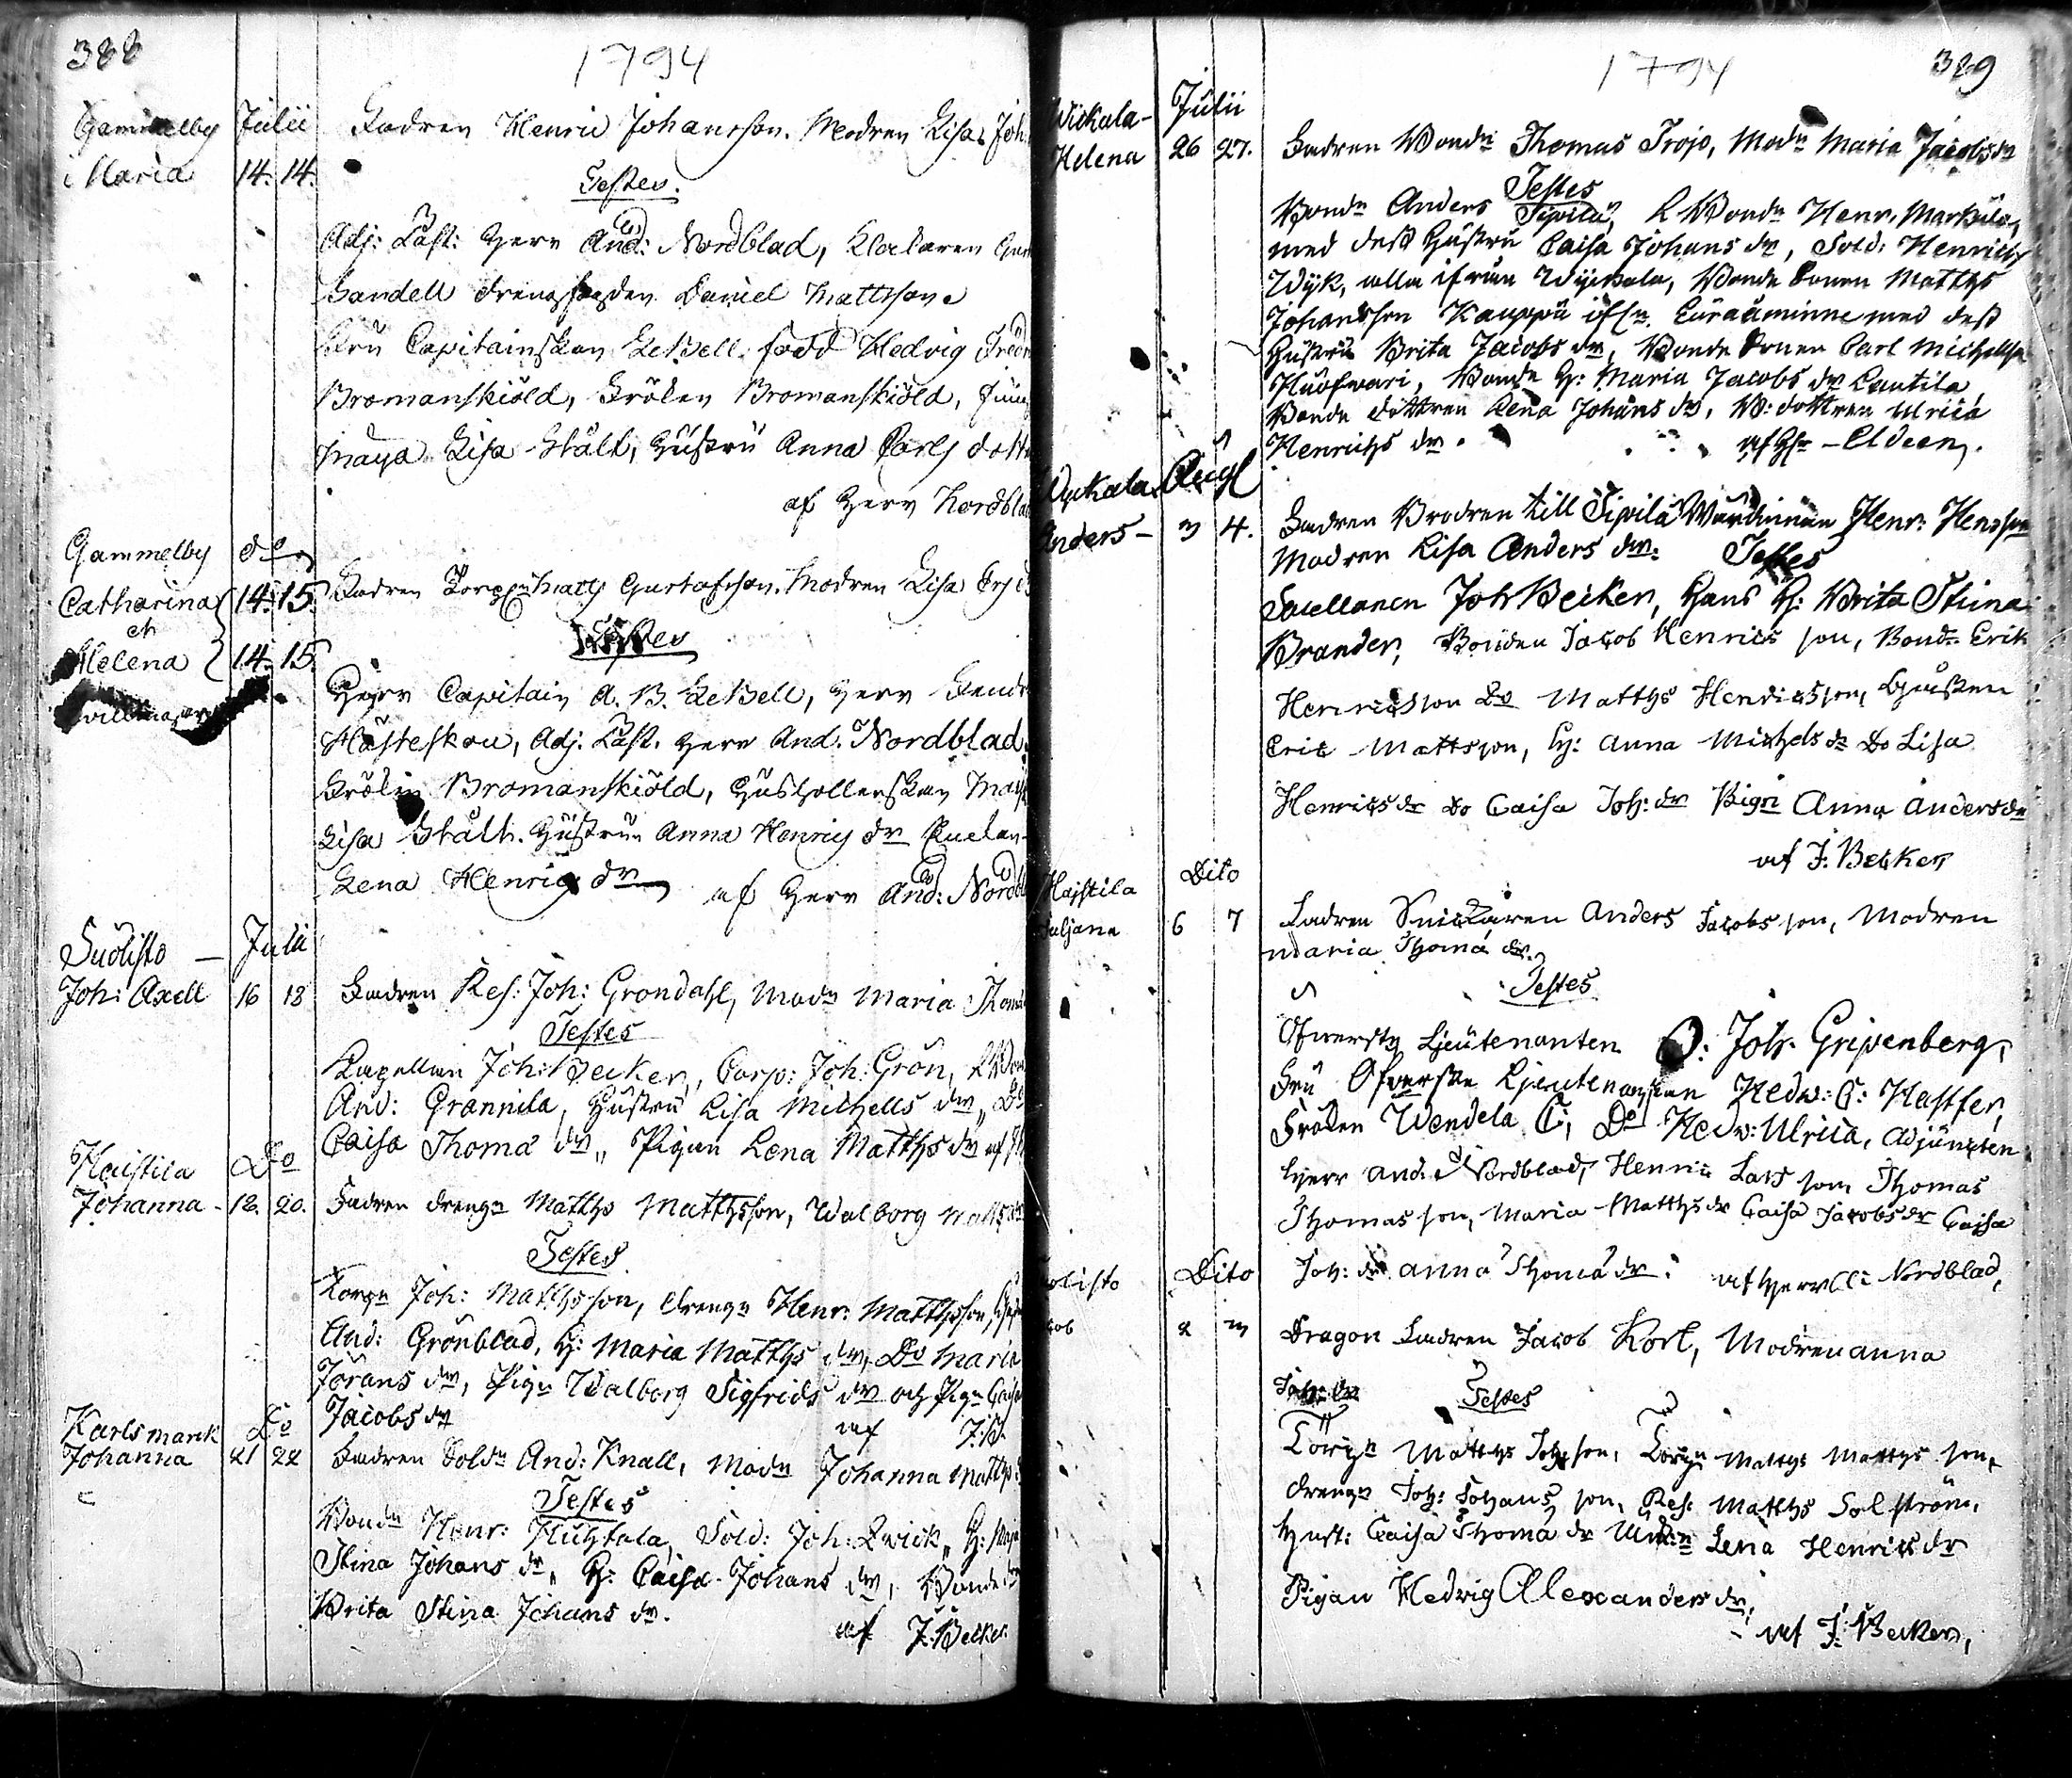 388
1794
Gammelby Julii Fadren Henric Johansson. Modren Lisa Joh
Maria 14. 14.
Testes.
Adj: Past: Herr And: Nordblad, Klockaren
Sandell drengfogden Daniel Mattsson
Fru Capitainskan LeBell född Hedvig
Bromanskiöld, Fröken Bromanskiöld,
Maya Lisa Stålt, Hustru Anna Carls dott
af Herr Nordbla
Gammelby do
Catharina 14. 15. Fadren Matts Gustafsson. Modren Lisa
et Testes
Helena 14. 15.
Herr Capitain A. B. LeBell, Herr
Hästeskou, Adj. Past. Herr And. Nordblad.
Frökin Bromanskiöld, Hushollerskan May
Lisa Stålt. Hustrun Anna Henrics dr
Lena Henrics dr af Herr And: Nordb
Suolisto – Julii
Joh: Axell 16 18 Fadren Res: Joh: Grondahl, Modn Maria Thomæ
Testes
Kapellan Joh: Becker, Corp: Joh: Grön,
And: Grannila, Hustru Lisa Michells dr, Do
Caisa Thomæ dr, Pigan Lena Matths dr af
Haistila Do
Johanna - 18. 20. Fadren drengn Matths Matthsson, Walborg Matts dr
Testes
Torpn Joh: Matthsson, drengn Henr: Matthsson,
And: Grönblad, H: Maria Matths dr, Do Maria
Jörans dr, Pign Walborg Sigfrids dr och Pign Caisa
Jacobs dr af J: B.
Karlsmark Do
Johanna 21 22 Fadren Soldn And: Knall, Modn Johanna Matths
Testes
Bondn Henr: Huhtala, Sold: Joh: Qvick, H:
Stina Johans dr, H: Caisa Johans dr, Bonde
Brita Stina Johans dr.
af J: Becker
1794
389
Wickala- Julii
Helena 26 27. Fadren Bondn Thomas Trojo, Modn Maria Jacobs dr
Testes
Bondn Anders Sipilä, Bondn Henr. Markula,
med dess Hustru Caisa Johans dr, Sold: Henrich
Wyk, alla ifrån Wyckala, Bonde Sonen Matths
Johansson Kauppu Euraåminne med dess
Hustru Brita Jacobs dr, Bonde Sonen Carl Michellss
Huofwari, Bondn H: Maria Jacobs dr Lautila
Bonde dottren Lena Johans dr, B: dottren Ulrica
Henrichs dr. af Hr – Eldeen.
Wyckala Augl
Anders – 3 4. Fadren Brodren till Sipilä Wärdinnan Henr: Henrsson
Modren Lisa Anders dr. Testes
Joh Becker, Hans H: Brita Stina
Brander, Bonden Jacob Henrics son, Bondn Erik
Henricsson Do Matths Henricsson, Gossen
Eric Mattsson, H: Anna Michels dr Do Lisa
Henrics dr Do Caisa Joh: dr Pign Anna Anders dr
af J. Becker
Haistila Dito
Juljana 6 7 Fadren Snickaren Anders Jacobs son, Modren
Maria Thomæ dr.
Testes
Öfwerste Lieutenanten O: Joh. Gripenberg,
Fru Öfwerste Lieutenanskan Hedw: C: Hastfer,
Fröken Wendela C, Do Hedw: Ulrica, Adjuncten
Herr And: Nordblad, Henric Lars son Thomas
Thomas son, Maria Matths dr Caisa Jacobs dr Caisa
Joh: dr Anna Thomæ dr. af Herr Nordblad,
olisto Dito
cob 2 3 Dragon Fadren Jacob Kort, Modren Anna
Joh: dr Testes
Torpn Matths Joh son, Torpn Matths Matths son,
drengn Joh: Johans son, Res: Matths Solström,
Hust: Caisa Thomæ dr Lena Henrics dr
Pigan Hedvig Alexanders dr,
af J: Becker,